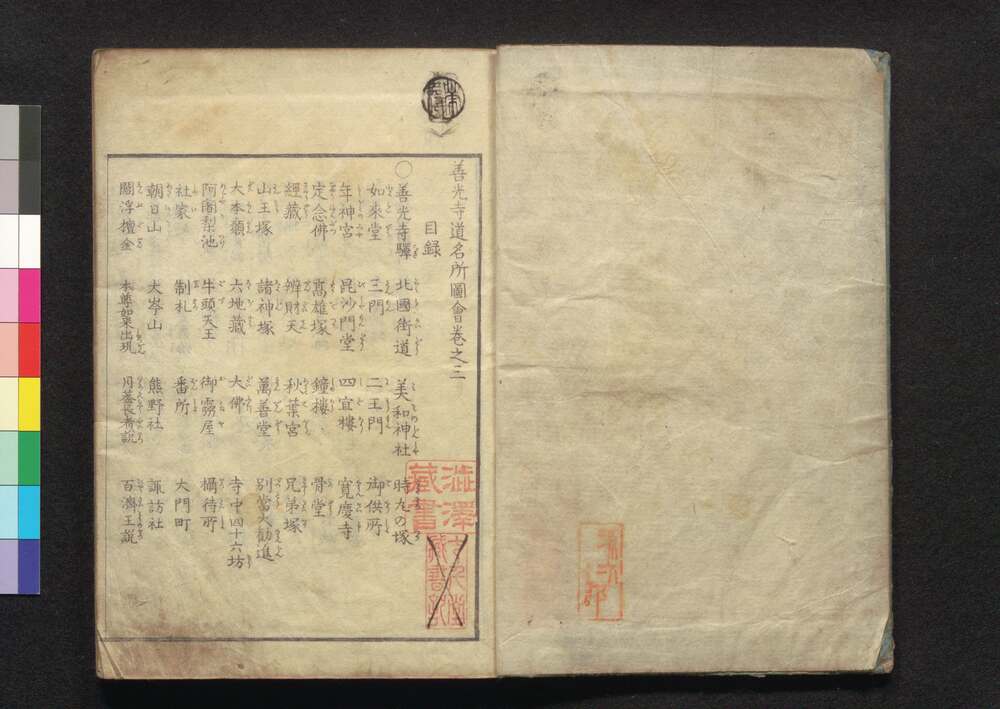 善光寺道名所圖會卷之三
目録
○善光寺驛 北國街道 美和神社 時丸の塚
如來堂 三門 二王門 御供所
年神宮 毘沙門堂 四宜樓 寛慶寺
定念佛 髙雄塚 鐘樓 骨堂
經藏 辨財天 秋葉宮 兄弟塚
山王塚 諸神塚 萬善堂 別當大勸進
大本願 六地藏 大佛 寺中四十六坊
阿闍梨池 牛頭天王 御霧屋 攝待所
社家 制札 番所 大門町
朝日山 大峯山 熊野社 諏訪社
閻浮檀金 本尊如來出現 月蓋長者説 百濟王説
澁澤
藏書